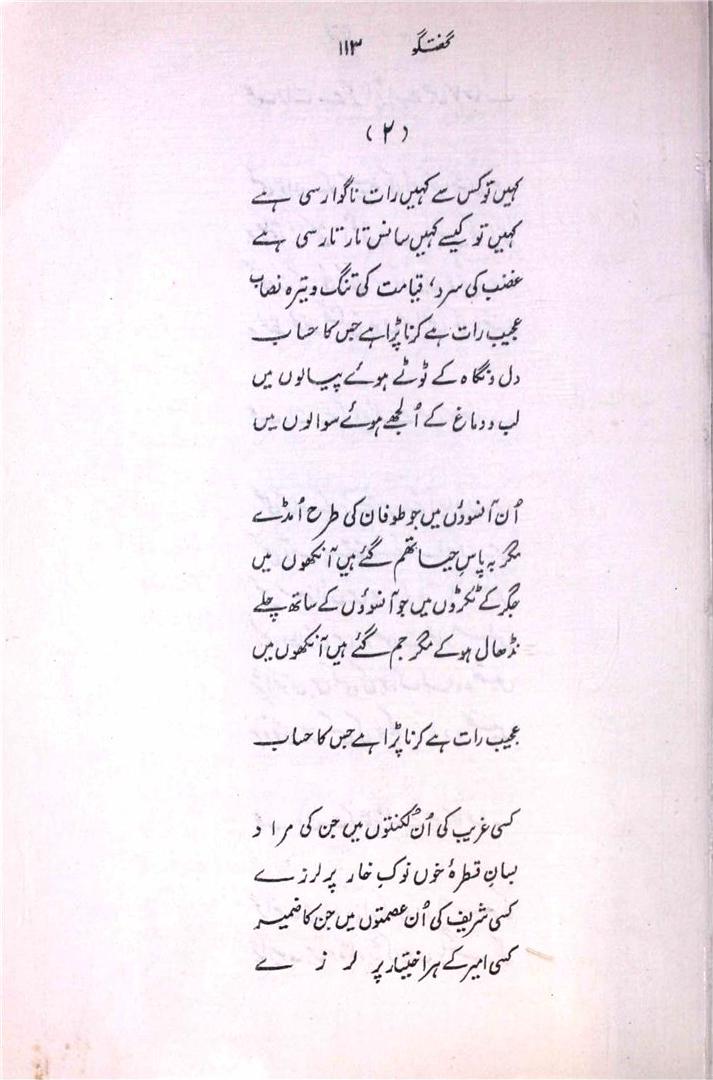 گفتگو ۱۱۳
(۲)
کہیں تو کس سے کہیں رات ناگوار سی ہے
کہیں تو کیسے کہیں سانس تار تار سی ہے
غضب کی سرد، قیامت کی تنگ و تیرہ نصاب
عجیب رات ہے کرنا پڑا ہے جس کا حساب
دل و نگاہ کے ٹوٹے ہوئے پیالوں میں
لب و دماغ کے اُلجھے ہوئے سوالوں میں
اُن آنسوؤں میں جو طوفان کی طرح اُمڈے
مگر بہ پاسِ حیا تھم گئے ہیں آنکھوں میں
جگر کے ٹکڑوں میں جو آنسوؤں کے ساتھ چلے
نڈھال ہو کے مگر جم گئے ہیں آنکھوں میں
عجیب رات ہے کرنا پڑا ہے جس کا حساب
کسی غریب کی اُن لُکنتوں میں جن کی مراد
بسانِ قطرۂ خوں نوکِ خار پر لرزے
کسی شریف کی اُن عصمتوں میں جن کا ضمیر
کسی امیر کے ہر اختیار پر لرزے